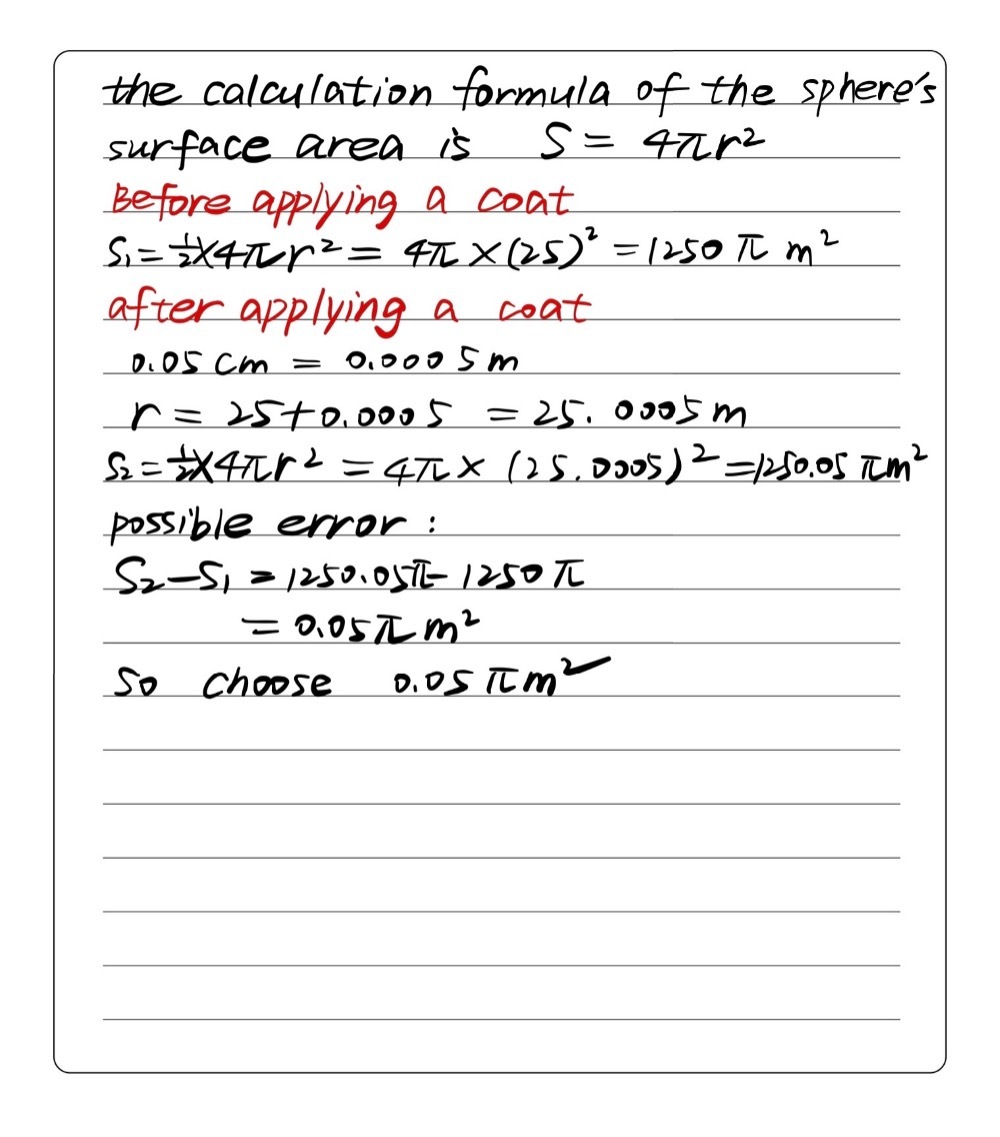 the calculation formula of the sphere's
surface area is S = 4πr²
Before applying a coat
S₁ = ½×4πr² = 4π×(25)² = 1250π m²
after applying a coat
0.05 cm = 0.0005 m
r = 25+0.0005 = 25.0005 m
S₂ = ½×4πr² = 4π× (25.0005)² = 1250.05 πm²
possible error :
S₂-S₁ = 1250.05π- 1250π
= 0.05π m²
So choose 0.05 πm²